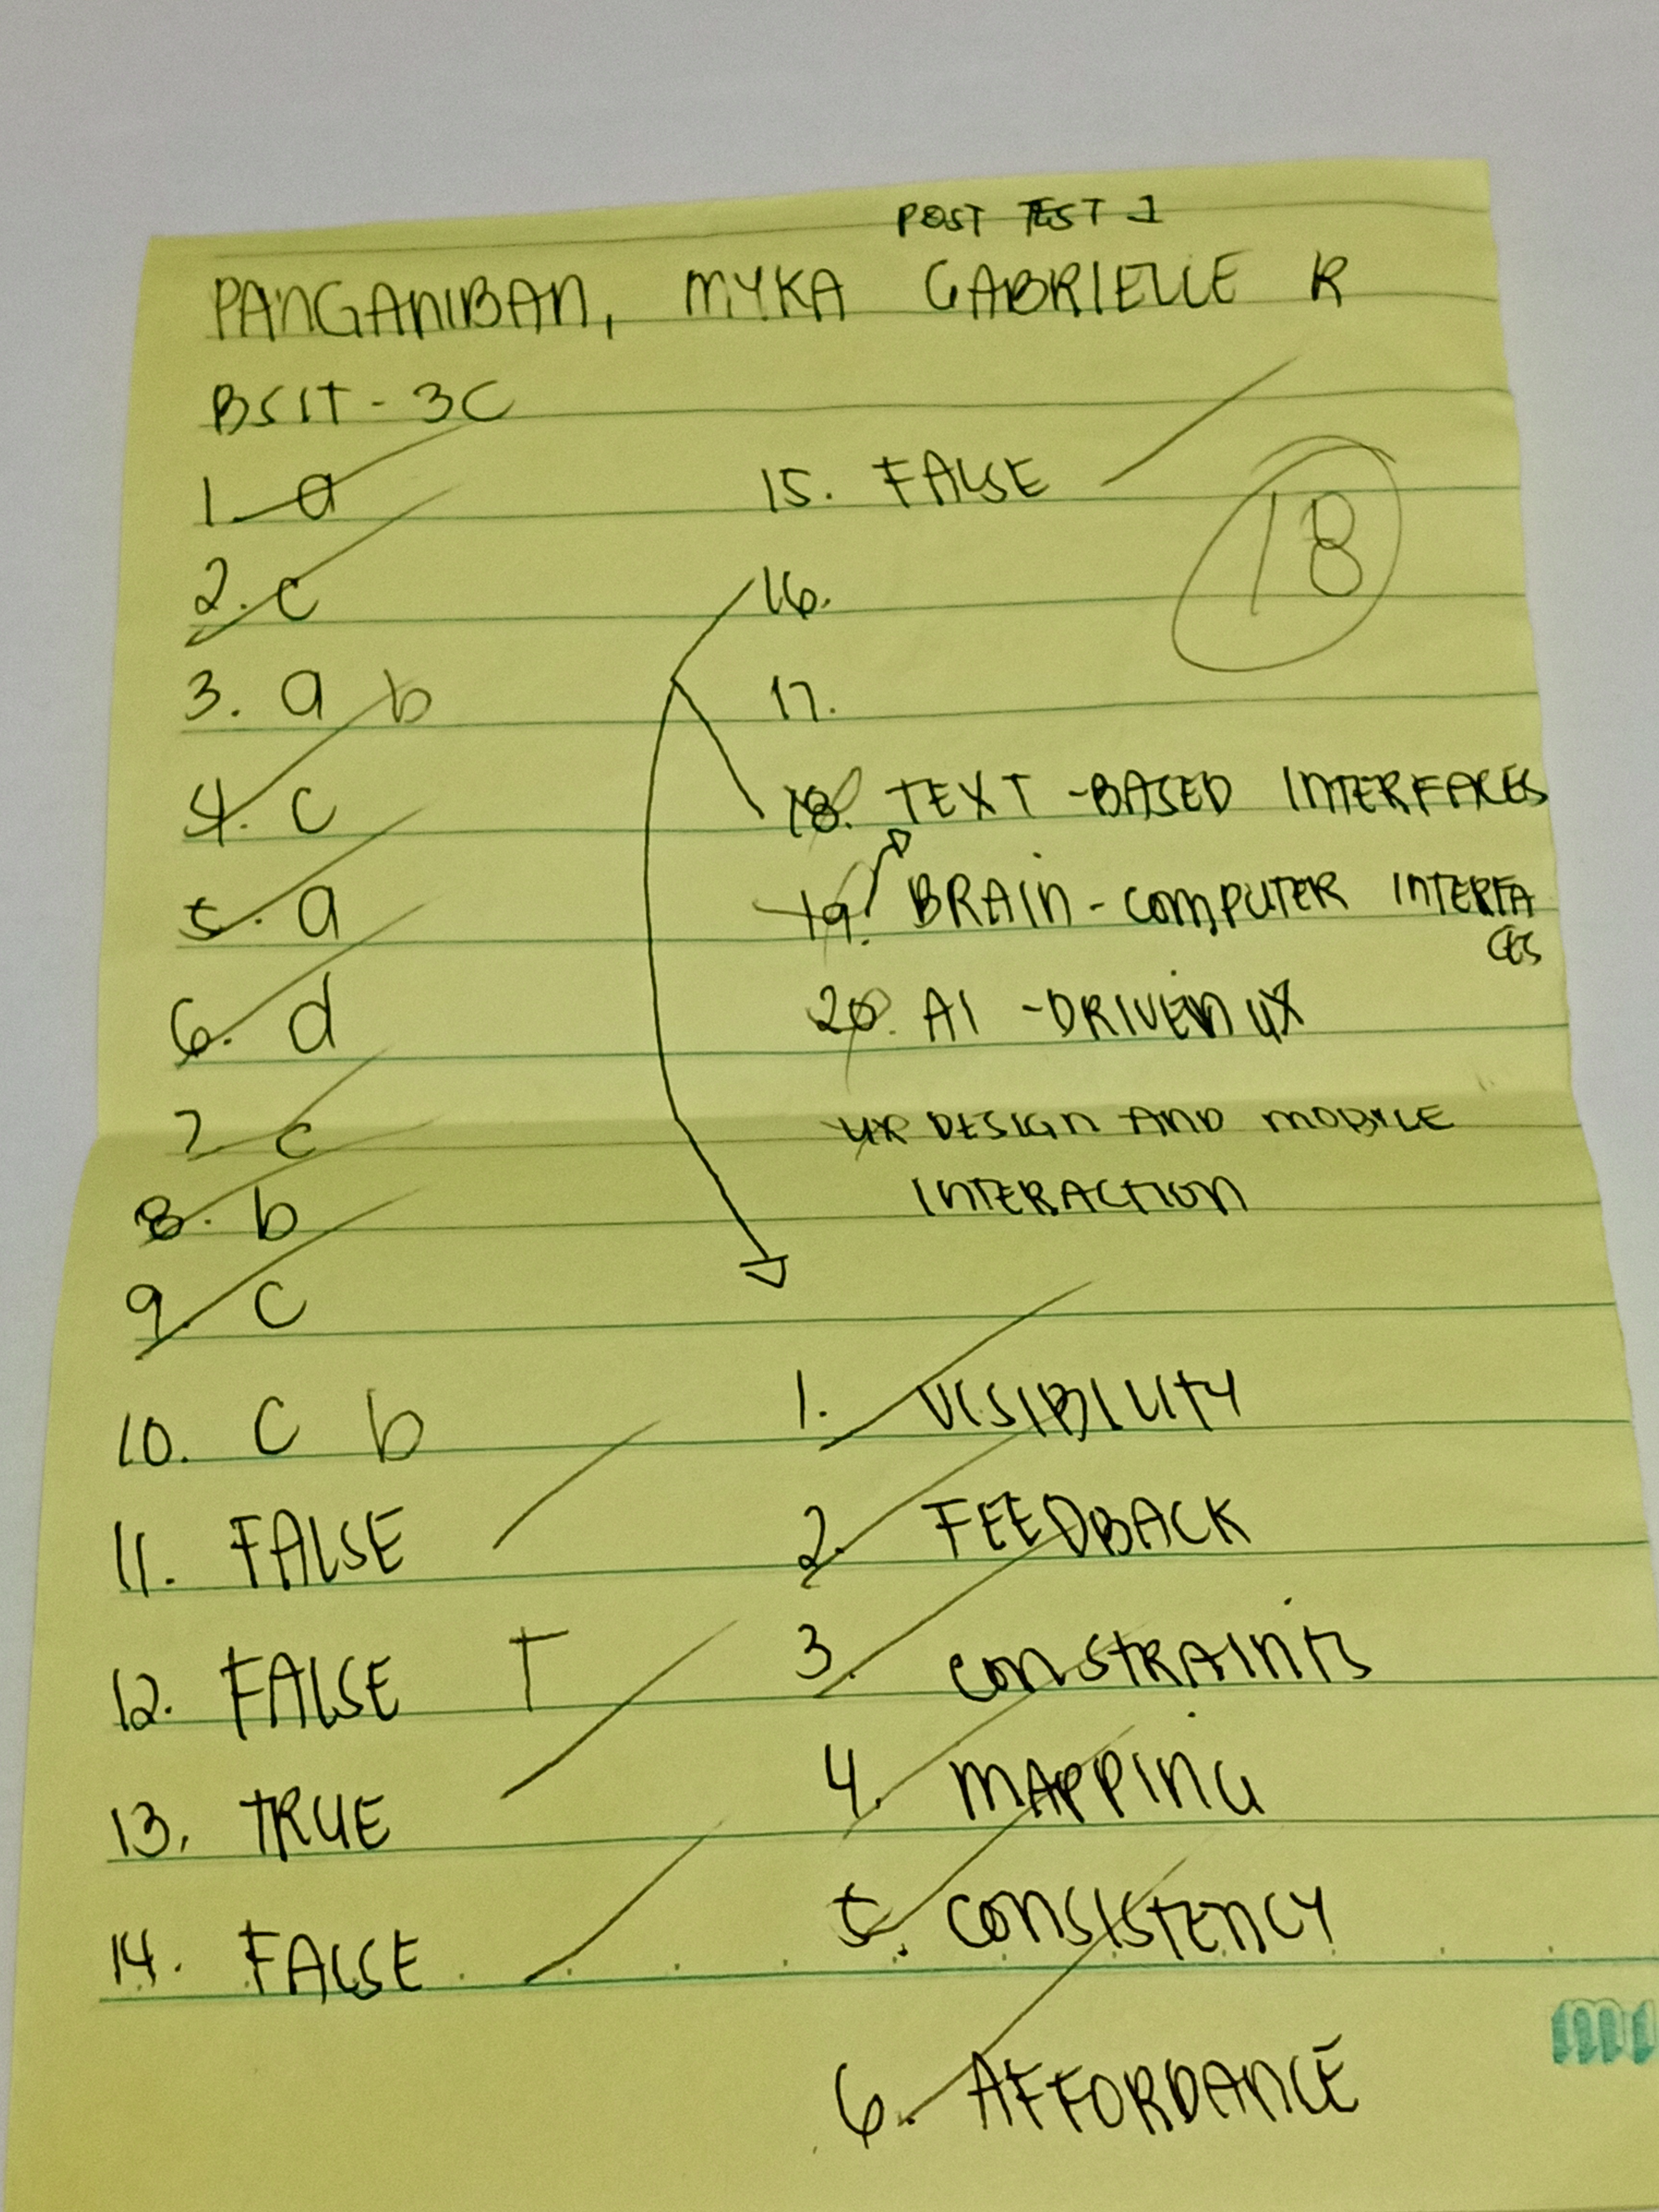 POST TEST 1
PANGANIBAN, MYKA GABRIELLE R
BSIT - 3C
1. a
2. c
3. a b
4. c
5. a
6. d
7. c
8. b
9. c
10. C b
11. FALSE
12. FALSE T
13. TRUE
14. FALSE
15. FALSE
18
16.
17.
18. TEXT-BASED INTERFACES
19. BRAIN-COMPUTER INTERFA
CES
20. AI-DRIVEN UX
DESIGN AND MOBILE
INTERACTION
1. VISIBILITY
2. FEEDBACK
3. CONSTRAINTS
4. MAPPING
5. CONSISTENCY
6. AFFORDANCE